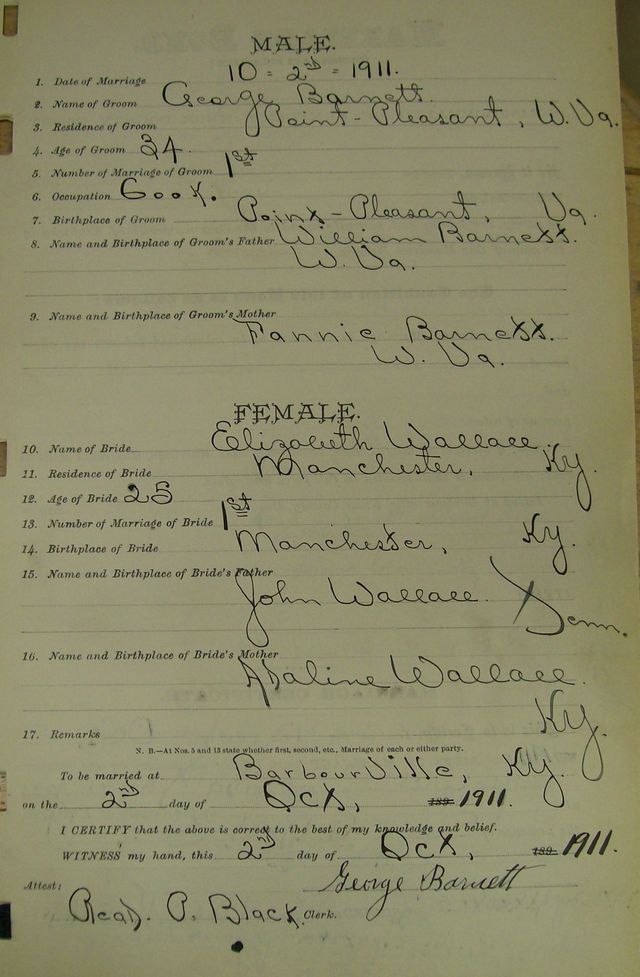 MALE.
1. Date of Marriage 10 = 2nd = 1911.
2. Name of Groom George Barnett.
3. Residence of Groom Point-Pleasant, W. Va.
4. Age of Groom 34.
5. Number of Marriage of Groom 1st
6. Occupation Cook.
7. Birthplace of Groom Point-Pleasant, Va.
8. Name and Birthplace of Groom's Father William Barnett.
W. Va.
9. Name and Birthplace of Groom's Mother
Fannie Barnett.
W. Va.
FEMALE.
10. Name of Bride Elizabeth Wallace.
11. Residence of Bride Manchester, Ky.
12. Age of Bride 25
13. Number of Marriage of Bride 1st
14. Birthplace of Bride Manchester, Ky.
15. Name and Birthplace of Bride's Father
John Wallace. Tenn.
16. Name and Birthplace of Bride's Mother
Adaline Wallace.
Ky.
17. Remarks
N. B.—At Nos. 5 and 13 state whether first, second, etc., Marriage of each or either party.
To be married at Barbourville, Ky.
on the 2nd day of Oct, 189 1911.
I CERTIFY that the above is correct to the best of my knowledge and belief.
WITNESS my hand, this 2nd day of Oct, 189 1911.
George Barnett
Attest:
Read. P. Black. Clerk.